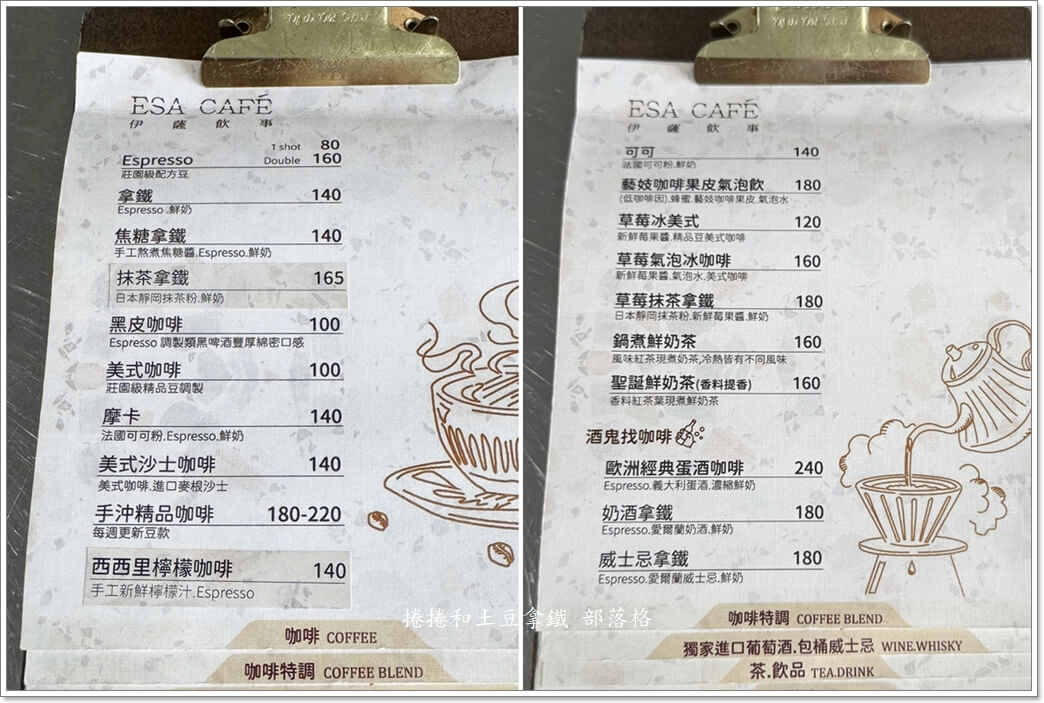 ESA CAFÉ
伊薩飲事
1 shot 80
Espresso Double 160
莊園級配方豆
拿鐵 140
Espresso .鮮奶
焦糖拿鐵 140
手工熬煮焦糖醬.Espresso.鮮奶
抹茶拿鐵 165
日本靜岡抹茶粉.鮮奶
黑皮咖啡 100
Espresso 調製類黑啤酒豐厚綿密口感
美式咖啡 100
莊園級精品豆調製
摩卡 140
法國可可粉.Espresso.鮮奶
美式沙士咖啡 140
美式咖啡.進口麥根沙士
手沖精品咖啡 180-220
每週更新豆款
西西里檸檬咖啡 140
手工新鮮檸檬汁.Espresso
咖啡 COFFEE
咖啡特調 COFFEE BLEND
ESA CAFÉ
伊薩飲事
可可 140
法國可可粉.鮮奶
藝妓咖啡果皮氣泡飲 180
(低咖啡因).蜂蜜.藝妓咖啡果皮.氣泡水
草莓冰美式 120
新鮮莓果醬.精品豆美式咖啡
草莓氣泡冰咖啡 160
新鮮莓果醬.氣泡水.美式咖啡
草莓抹茶拿鐵 180
日本靜岡抹茶粉.新鮮莓果醬.鮮奶
鍋煮鮮奶茶 160
風味紅茶現煮奶茶.冷熱皆有不同風味
聖誕鮮奶茶(香料提香) 160
香料紅茶葉現煮鮮奶茶
酒鬼找咖啡
歐洲經典蛋酒咖啡 240
Espresso.義大利蛋酒.濃縮鮮奶
奶酒拿鐵 180
Espresso.愛爾蘭奶酒.鮮奶
威士忌拿鐵 180
Espresso.愛爾蘭威士忌.鮮奶
咖啡特調 COFFEE BLEND
獨家進口葡萄酒.包桶威士忌 WINE.WHISKY
茶.飲品 TEA.DRINK
捲捲和土豆拿鐵 部落格